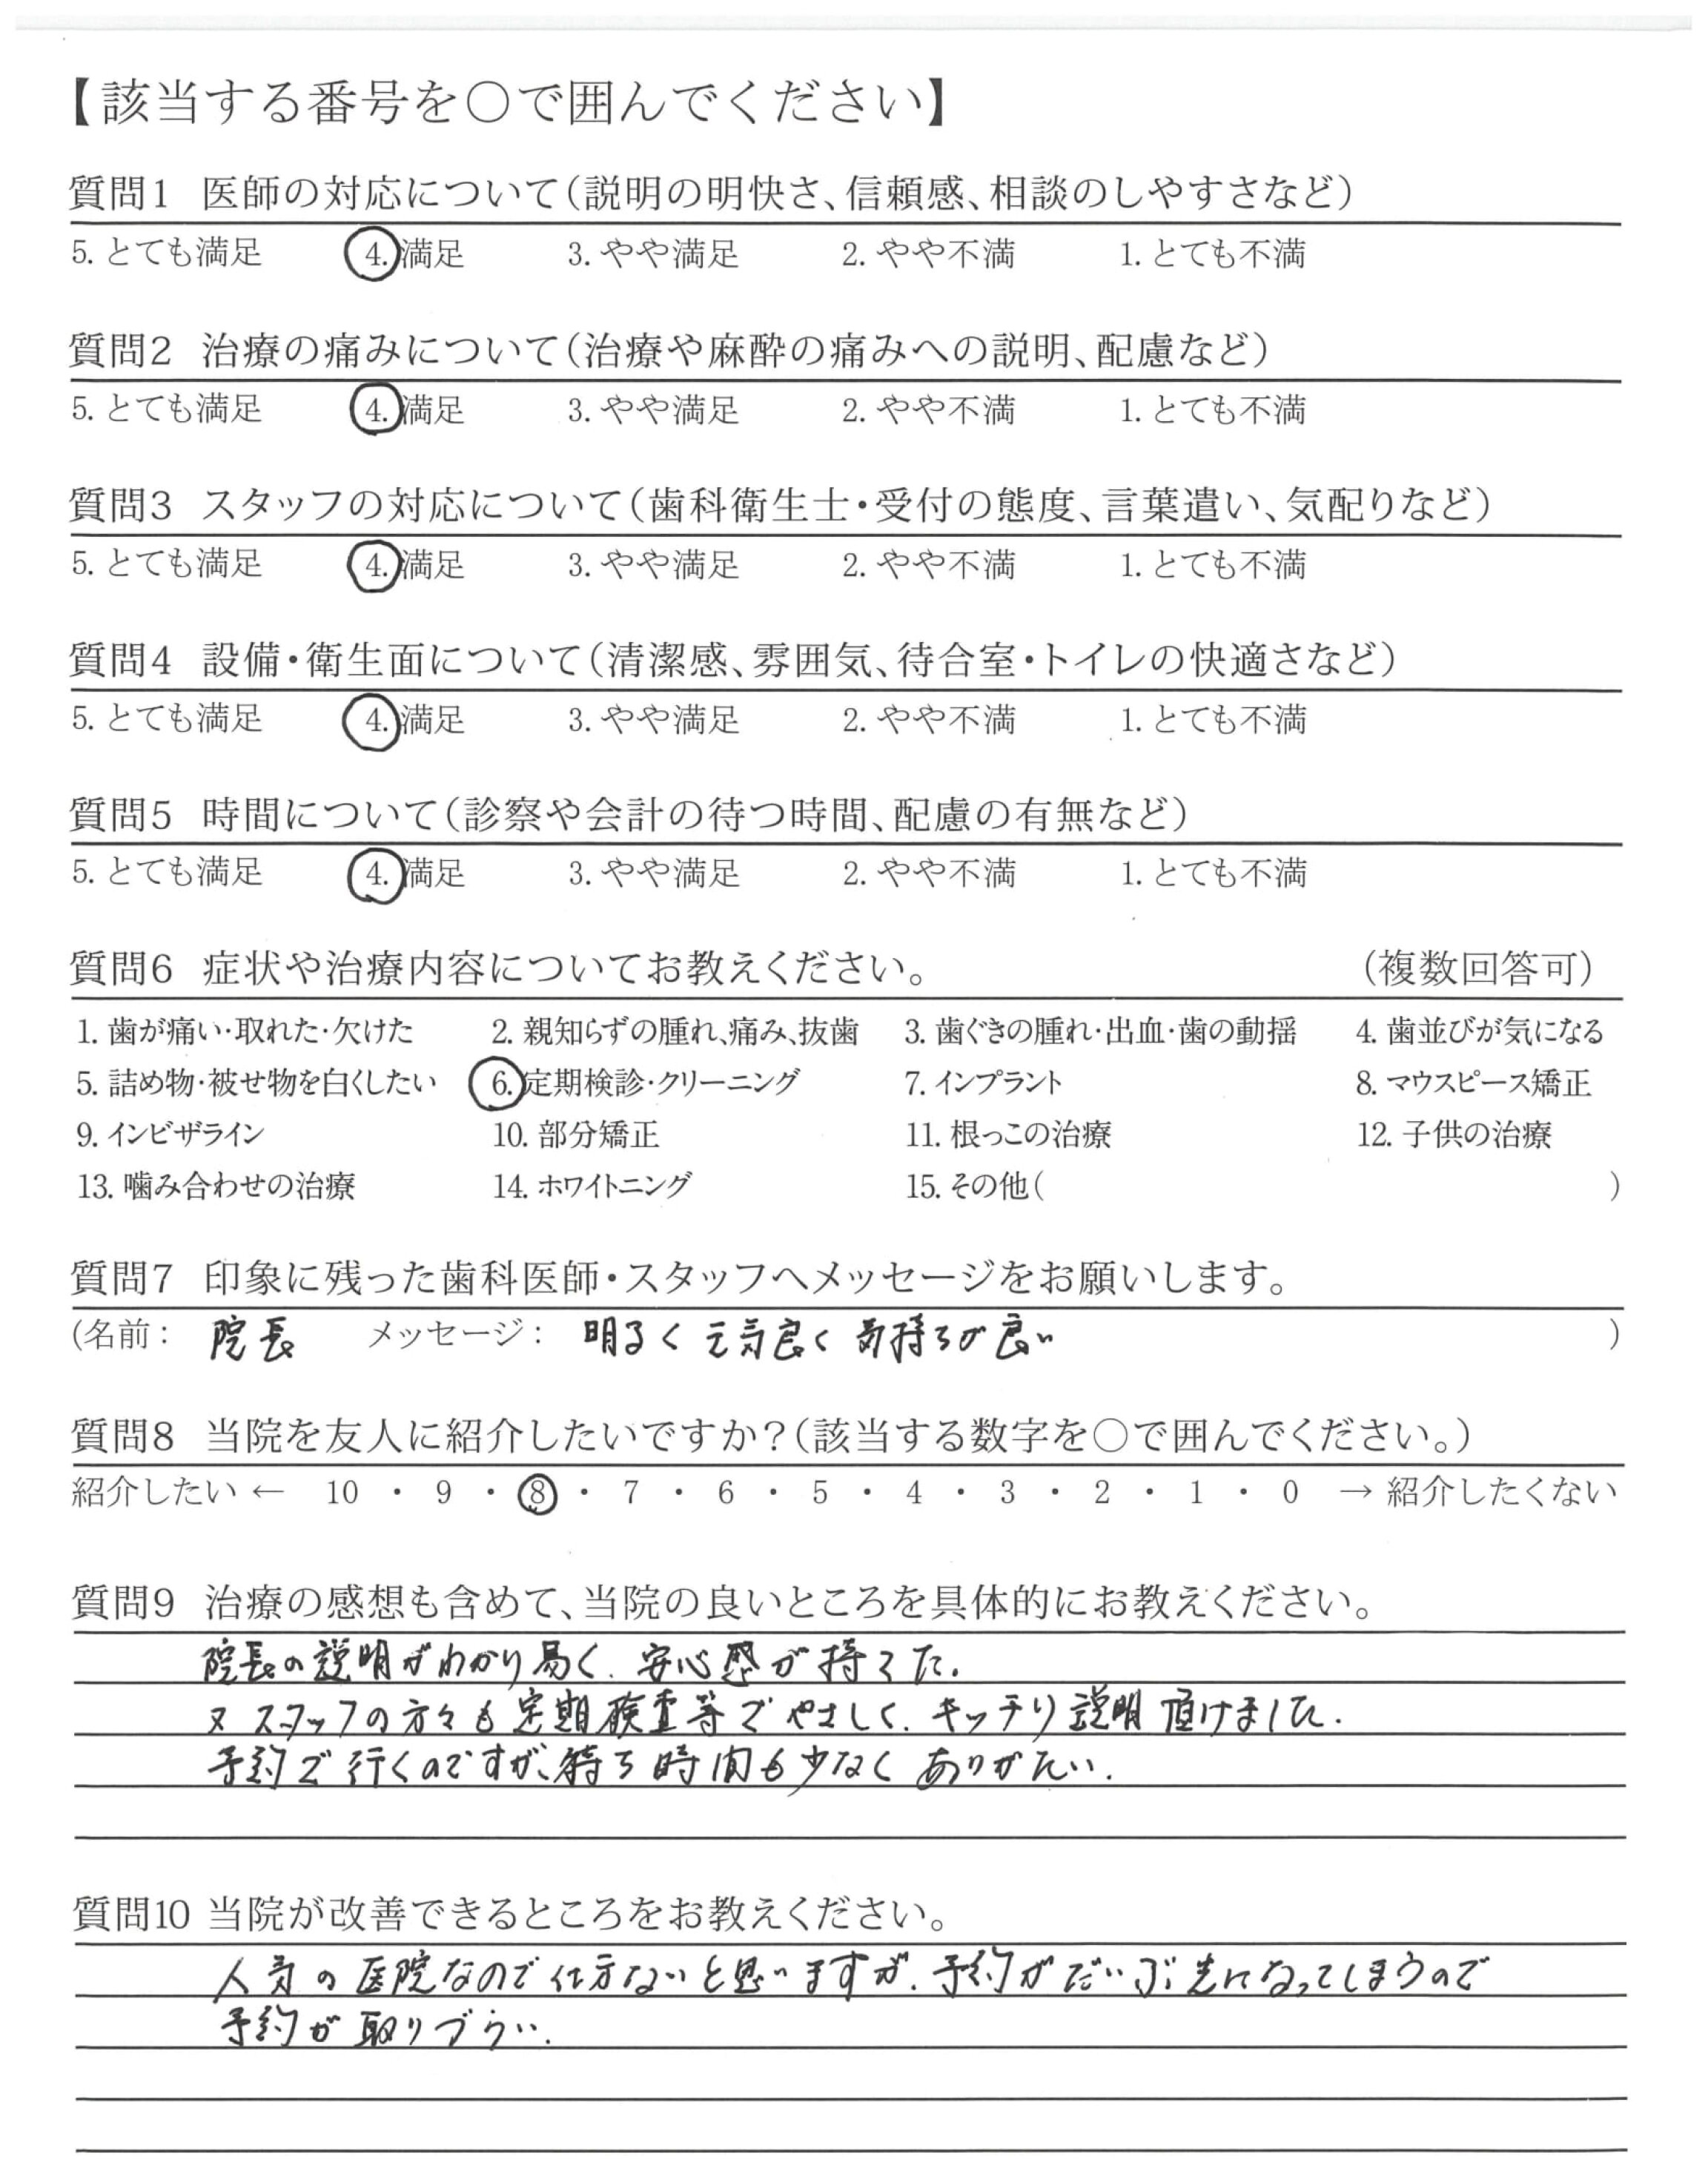 【該当する番号を○で囲んでください】
質問1 医師の対応について(説明の明快さ、信頼感、相談のしやすさなど)
5. とても満足 4. 満足 3. やや満足 2. やや不満 1. とても不満
質問2 治療の痛みについて(治療や麻酔の痛みへの説明、配慮など)
5. とても満足 4. 満足 3. やや満足 2. やや不満 1. とても不満
質問3 スタッフの対応について(歯科衛生士・受付の態度、言葉遣い、気配りなど)
5. とても満足 4. 満足 3. やや満足 2. やや不満 1. とても不満
質問4 設備・衛生面について(清潔感、雰囲気、待合室・トイレの快適さなど)
5. とても満足 4. 満足 3. やや満足 2. やや不満 1. とても不満
質問5 時間について(診察や会計の待つ時間、配慮の有無など)
5. とても満足 4. 満足 3. やや満足 2. やや不満 1. とても不満
質問6 症状や治療内容についてお教えください。 (複数回答可)
1. 歯が痛い・取れた・欠けた 2. 親知らずの腫れ、痛み、抜歯 3. 歯ぐきの腫れ・出血・歯の動揺 4. 歯並びが気になる
5. 詰め物・被せ物を白くしたい 6. 定期検診・クリーニング 7. インプラント 8. マウスピース矯正
9. インビザライン 10. 部分矯正 11. 根っこの治療 12. 子供の治療
13. 噛み合わせの治療 14. ホワイトニング 15. その他( )
質問7 印象に残った歯科医師・スタッフへメッセージをお願いします。
(名前: 院長 メッセージ: 明るく元気良く気持ちが良い )
質問8 当院を友人に紹介したいですか?(該当する数字を○で囲んでください。)
紹介したい ← 10 ・ 9 ・ 8 ・ 7 ・ 6 ・ 5 ・ 4 ・ 3 ・ 2 ・ 1 ・ 0 → 紹介したくない
質問9 治療の感想も含めて、当院の良いところを具体的にお教えください。
院長の説明がわかり易く、安心感が持てた。
又スタッフの方々も定期検査等でやさしく、キッチリ説明頂けました.
予約で行くのですが、待ち時間も少なくありがたい.
質問10 当院が改善できるところをお教えください。
人気の医院なので仕方ないと思いますが、予約がだいぶ先になってしまうので
予約が取りづらい.